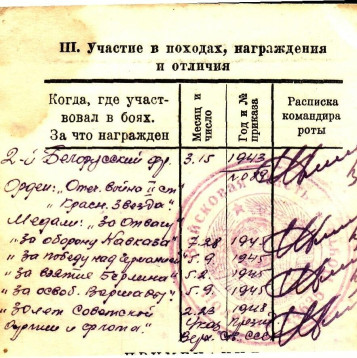 III. Участие в походах, награждения
и отличия
Когда, где участ-
вовал в боях.
За что награжден
Месяц и
число
Год и №
приказа
Расписка
командира
роты
2-й Белорусский фр. 3.15 1943
Орден: „Отеч. война II ст
„Красн. Звезда"
Медали: „За Отвагу
„За оборону Кавказа" 7.28 1945
„За победу над Германией" 5.9 1945
„За взятие Берлина" 5.2 1945
„За освоб. Варшавы" 5.9 1945
„30 лет Советской 2.23 1948
Армии и флота." Указ Презид.
Верх. Св. ССС